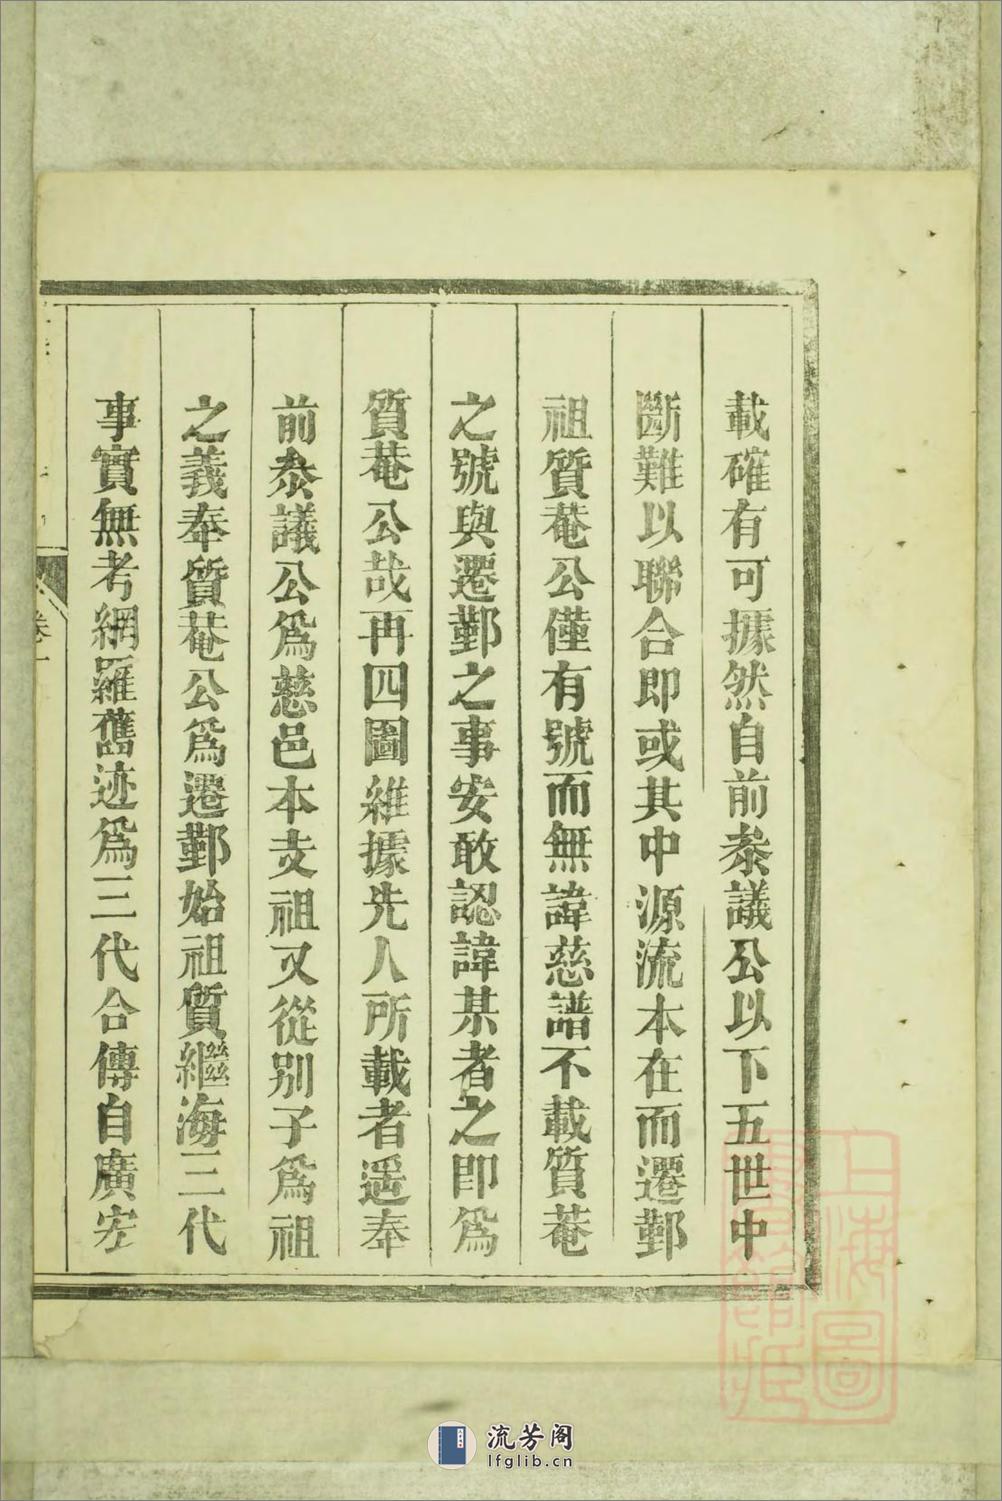 載確有可據然自前叅議公以下五世中
斷難以聯合即或其中源流本在而遷鄞
祖質菴公僅有號而無諱慈譜不載質菴
之號與遷鄞之事安敢認諱某者之即爲
質菴公哉再四圖維據先人所載者遥奉
前叅議公爲慈邑本支祖又從别子爲祖
之義奉質菴公爲遷鄞始祖質繼海三代
事實無考網羅舊迹爲三代合傳自廣宏
卷一
上海圖
書館藏
流芳阁
lfglib.cn